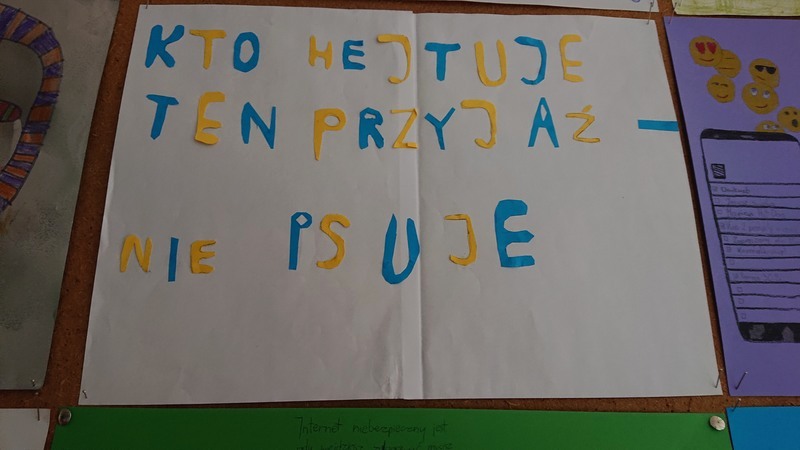 KTO HEJTUJE
TEN PRZYJAŹ -
NIE PSUJE
Internet niebezpieczny jest